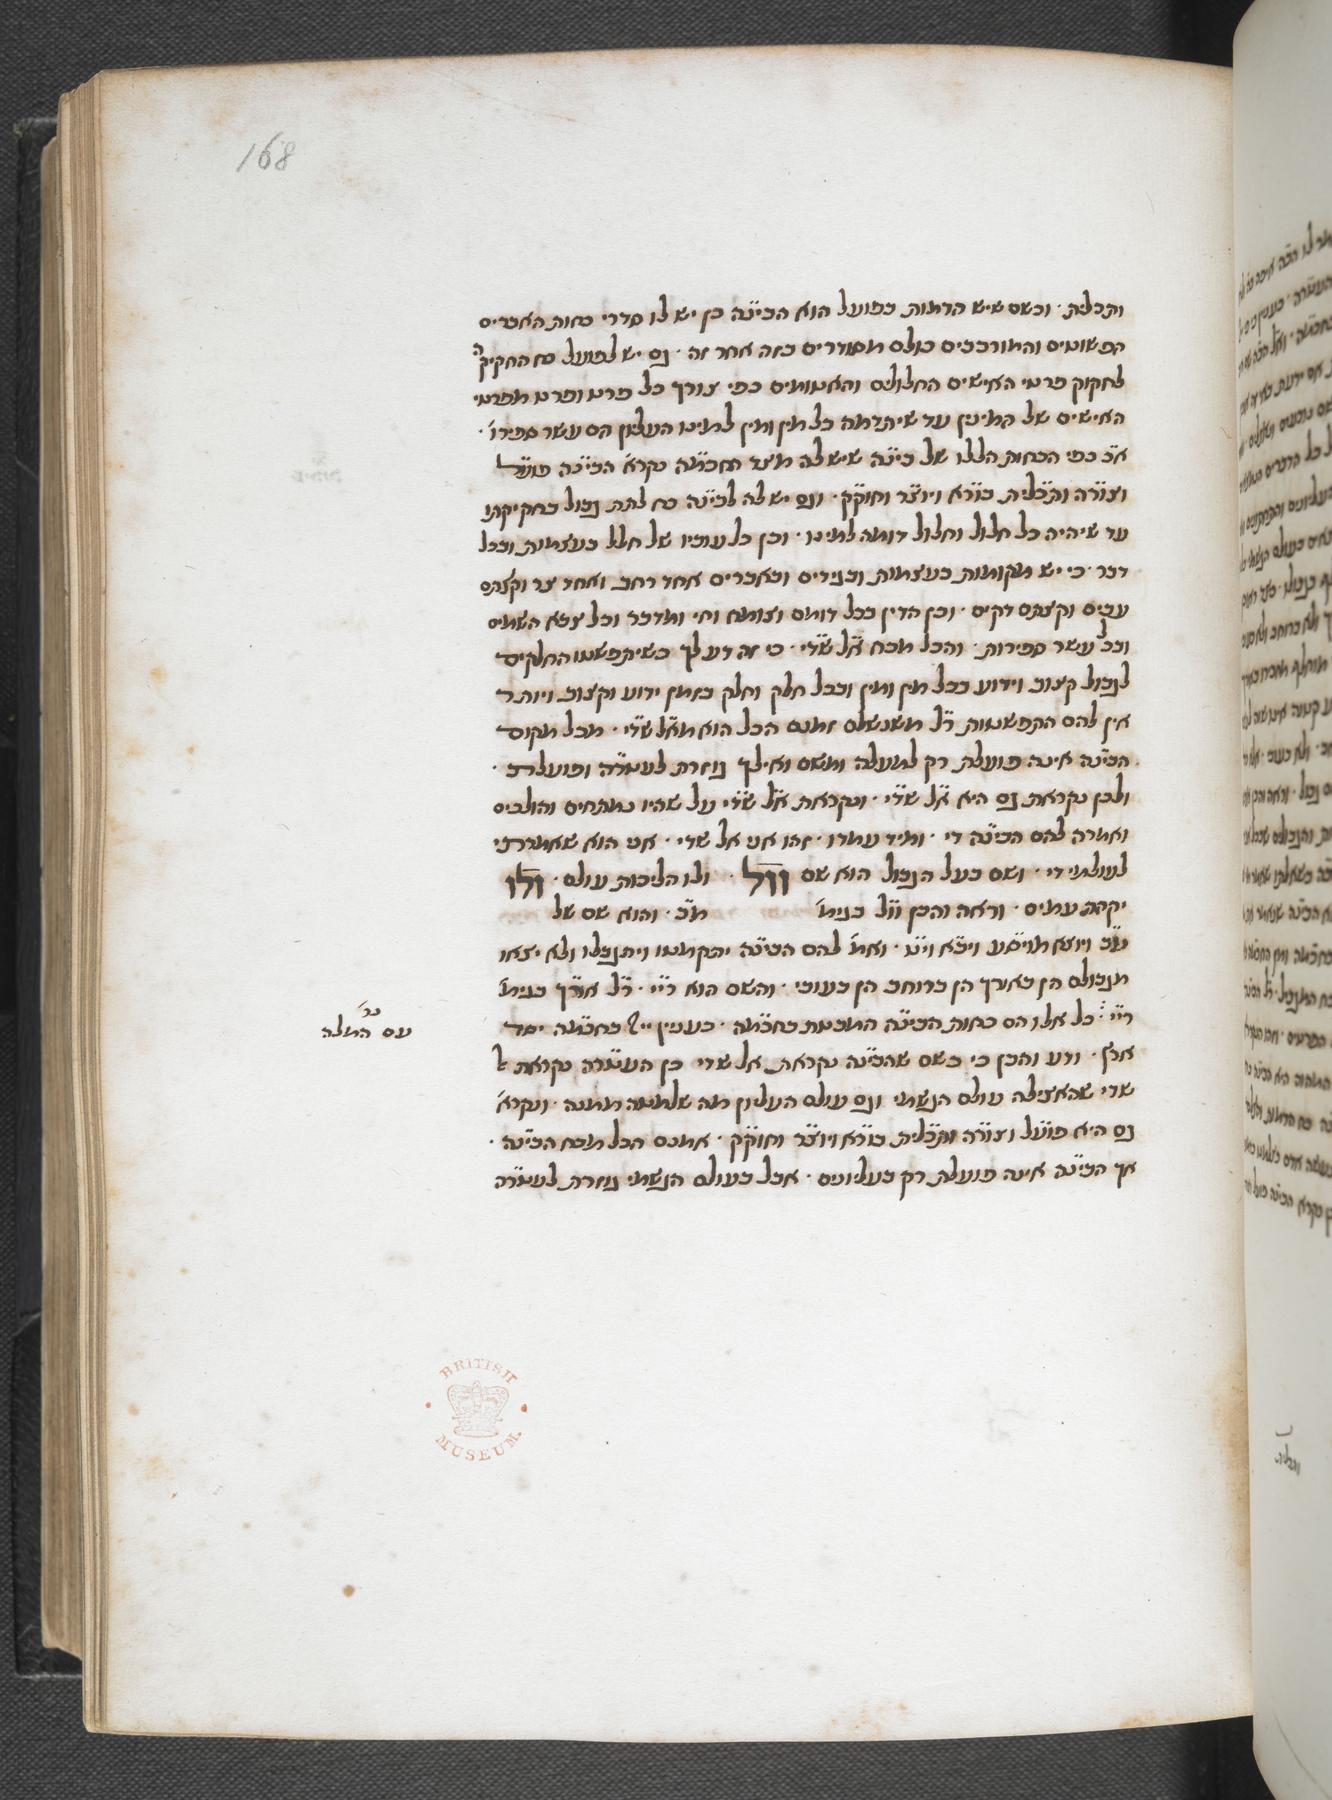 168
ותכלית · וכשם שיש הדמות בפועל הוא הבינה כן יש לו סדרי כחות האברים
הפשוטים והמורכבים כולם מסודרים בזה אחר זה · גם יש לפועל כח החקיקה
לחקוק פרטי האישים החלולים והאטומים כפי צורך כל פרט ופרט מפרטי
האישים של המינין עד שיתדמה כל מין ומין למינו העליון הם עשר ספירו' ·
א"כ כפי הכחות הללו של בי"נה שיש לה מצד החכ"מה נקרא הבי"נה פוע"ל
וצו"רה ותכ"לית בור"א ויוצ"ר וחוק"ק · וגם יש לה לבי"נה כח לתת גבול בחקיקתו
עד שיהיה כל חלול וחלול דומה למינו · וכן כל עוביו של חלל בעצמות ובכל
דבר · כי יש מקומות בעצמות ובגידים ובאברים אחד רחב ואחד צר וקצתם
עבים וקצתם דקים · וכן הדין בכל דומם וצומח וחי ומדבר וכל צבא השמים
ובכל עשר ספירות · והכל מכח א"ל שד"י · כי זה דע לך כשיתפשטו החלקים
לגבול קצוב וידוע בכל מין ומין ובכל חלק וחלק בזמן ידוע וקצוב ויותר
אין להם התפשטות ר"ל משנשלם זמנם הכל הוא מא"ל שד"י · מכל מקום
הבי"נה אינה פועלת רק למעלה ומשם ואילך גוזרת לעט"רה ופועלת ·
ולכן נקראת גם היא א"ל שד"י · ונקראת א"ל שד"י על שהיו נמתחים והולכים
ואמרה להם הבי"נה די · ומיד עמדו · זהו אני אל שדי · אני הוא שאמרתי
לעולמי די · ושם בעל הגבול הוא שם וו"ל · ולו הליכות עולם · ול"ו
יקהת עמים · וראה והבן וו"ל בגימ' מ"ב · והוא שם של
ע"ב ויוצא מוי"סע ויב"א וי"ט · ואמ' להם הבי"נה יתקמטו ויתגבלו ולא יצאו
מגבולם הן באורך הן ברוחב הן בעובי · והשם הוא רי"י · ר"ל אור"ך בגימ'
רי"י : כל אלו הם כחות הבי"נה המכוחת בחכ"מה · כענין יי' בחכ"מה יסד
ארץ · ודע והבן כי כשם שהבי"נה נקראת אל שדי כן העט"רה נקראת אל
שדי שהאצילה עולם הגשמי וגם עולם העליון מה שלמטה ממנה · ונקרא'
גם היא פוע"ל וצו"רה ותכ"לית בור"א ויוצ"ר וחוק"ק · אמנם הכל מכח הבי"נה ·
אך הבי"נה אינה פועלת רק בעליונים · אבל בעולם הגשמי גוזרת לעט"רה
נר'
עם המלה
BRITISH
MUSEUM